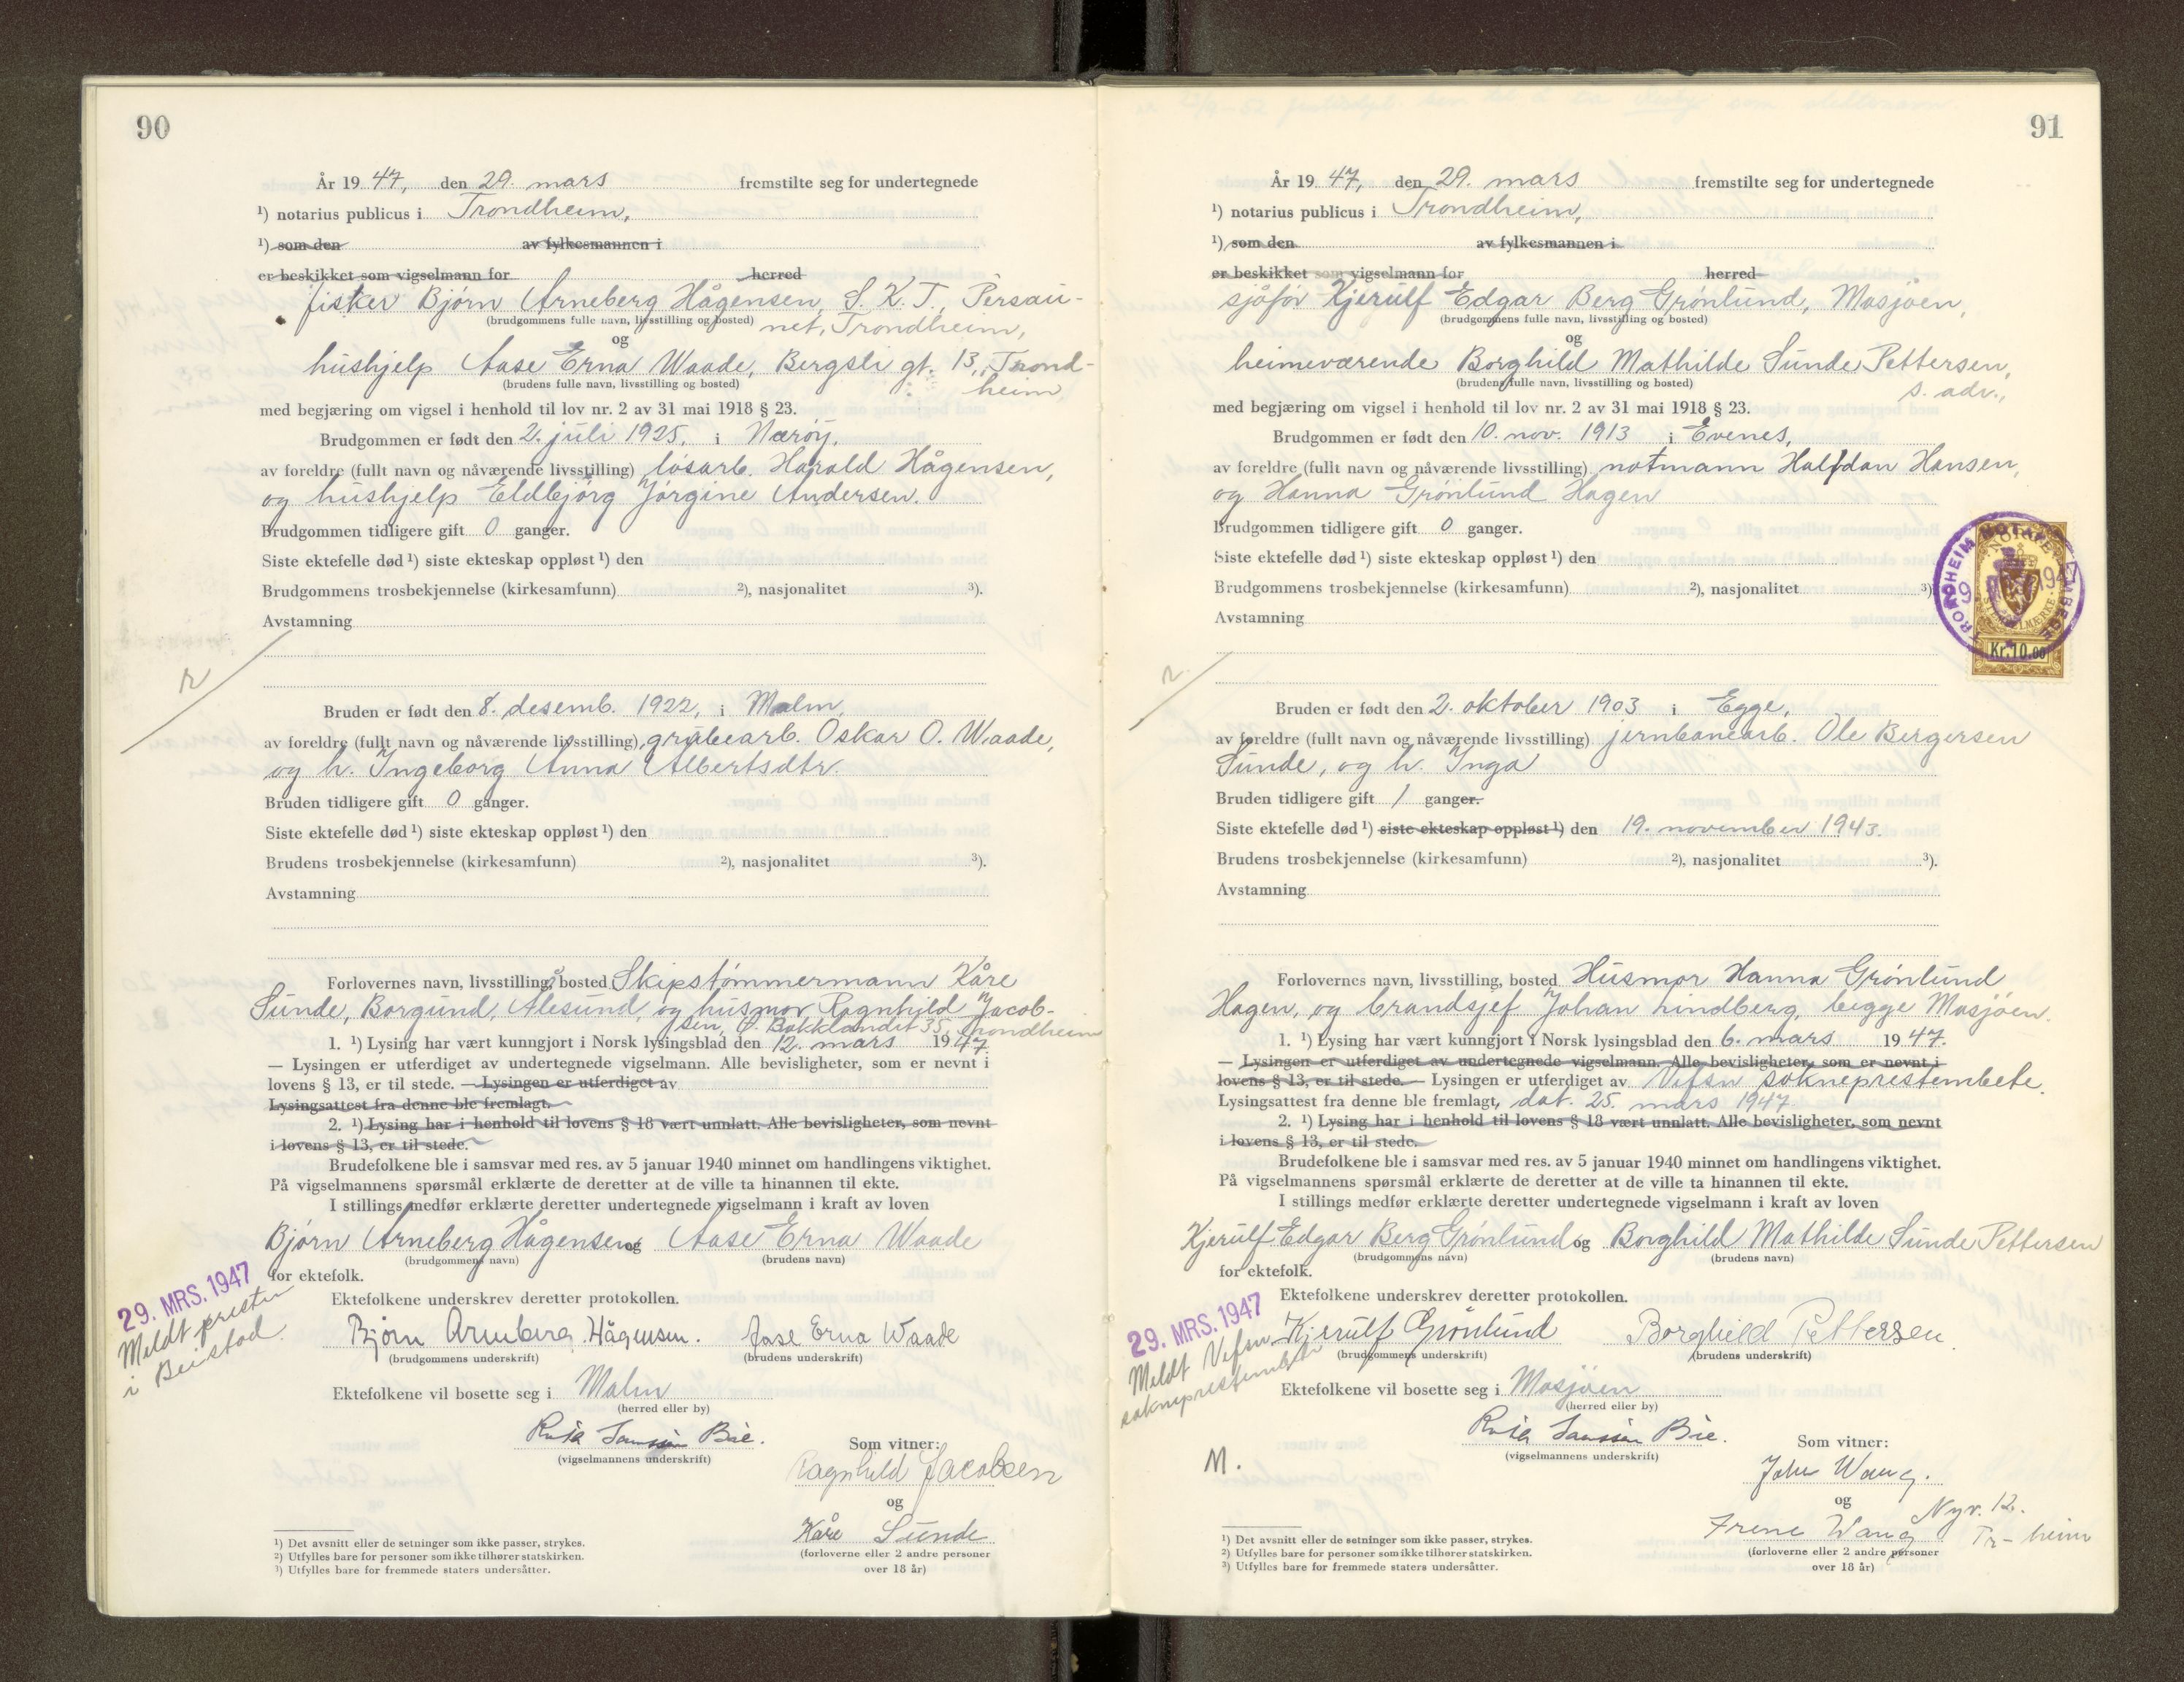 90
År 19 47, den 29. mars fremstilte seg for undertegnede
¹) notarius publicus i Trondheim,
¹) som den av fylkesmannen i
er beskikket som vigselmann for herred
fisker Bjørn Arneberg Hågensen, S. K. T., Persau-
(brudgommens fulle navn, livsstilling og bosted) net, Trondheim,
og
hushjelp Aase Erna Waade, Bergsli gt. 13, Trond-
(brudens fulle navn, livsstilling og bosted) heim,
med begjæring om vigsel i henhold til lov nr. 2 av 31 mai 1918 § 23.
Brudgommen er født den 2. juli 1925, i Nærøy,
av foreldre (fullt navn og nåværende livsstilling) løsarb. Harald Hågensen,
og hushjelp Eldbjørg Jørgine Andersen.
Brudgommen tidligere gift 0 ganger.
Siste ektefelle død ¹) siste ekteskap oppløst ¹) den
Brudgommens trosbekjennelse (kirkesamfunn) ²), nasjonalitet ³).
Avstamning
Bruden er født den 8. desemb. 1922, i Malm,
av foreldre (fullt navn og nåværende livsstilling) grubearb. Oskar O. Waade,
og h. Ingeborg Anna Albertsdtr.
Bruden tidligere gift 0 ganger.
Siste ektefelle død ¹) siste ekteskap oppløst ¹) den
Brudens trosbekjennelse (kirkesamfunn) ²), nasjonalitet ³).
Avstamning
Forlovernes navn, livsstilling, bosted Skipstømmermann Kåre
Sunde, Borgund, Ålesund, og husmor Ragnhild Jacob-
sen, Ø. Bakklandet 35, Trondheim
1. ¹) Lysing har vært kunngjort i Norsk lysingsblad den 12. mars 1947
— Lysingen er utferdiget av undertegnede vigselmann. Alle bevisligheter, som er nevnt i
lovens § 13, er til stede. — Lysingen er utferdiget av
Lysingsattest fra denne ble fremlagt.
2. ¹) Lysing har i henhold til lovens § 18 vært unnlatt. Alle bevisligheter, som nevnt
i lovens § 13, er til stede.
Brudefolkene ble i samsvar med res. av 5 januar 1940 minnet om handlingens viktighet.
På vigselmannens spørsmål erklærte de deretter at de ville ta hinannen til ekte.
I stillings medfør erklærte deretter undertegnede vigselmann i kraft av loven
Bjørn Arneberg Hågensen og Aase Erna Waade
(brudgommens navn) (brudens navn)
for ektefolk.
29. MRS. 1947
Meldt presten
i Beistad.
Ektefolkene underskrev deretter protokollen.
Bjørn Arneberg Hågensen. Aase Erna Waade
(brudgommens underskrift) (brudens underskrift)
Ektefolkene vil bosette seg i Malm
(herred eller by)
Bie.
(vigselmannens underskrift)
Som vitner:
Ragnhild Jacobsen
og
Kåre Sunde
(forloverne eller 2 andre personer
over 18 år)
¹) Det avsnitt eller de setninger som ikke passer, strykes.
²) Utfylles bare for personer som ikke tilhører statskirken.
³) Utfylles bare for fremmede staters undersåtter.
91
År 19 47, den 29. mars fremstilte seg for undertegnede
¹) notarius publicus i Trondheim,
¹) som den av fylkesmannen i
er beskikket som vigselmann for herred
sjåfør Kjerulf Edgar Berg Grønlund, Mosjøen,
(brudgommens fulle navn, livsstilling og bosted)
og
heimeværende Borghild Mathilde Sunde Pettersen,
(brudens fulle navn, livsstilling og bosted) s. adr.,
med begjæring om vigsel i henhold til lov nr. 2 av 31 mai 1918 § 23.
Brudgommen er født den 10. nov. 1913 i Evenes,
av foreldre (fullt navn og nåværende livsstilling) notmann Halfdan Hansen,
og Hanna Grønlund Hagen
Brudgommen tidligere gift 0 ganger.
Siste ektefelle død ¹) siste ekteskap oppløst ¹) den
Brudgommens trosbekjennelse (kirkesamfunn) ²), nasjonalitet ³).
Avstamning
NORGE
Kr. 10.00
Bruden er født den 2. oktober 1903 i Egge,
av foreldre (fullt navn og nåværende livsstilling) jernbanearb. Ole Bergersen
Sunde, og h. Inga
Bruden tidligere gift 1 ganger.
Siste ektefelle død ¹) siste ekteskap oppløst ¹) den 19. november 1943.
Brudens trosbekjennelse (kirkesamfunn) ²), nasjonalitet ³).
Avstamning
Forlovernes navn, livsstilling, bosted Husmor Hanna Grønlund
Hagen, og brandsjef Johan Lindberg, begge Mosjøen.
1. ¹) Lysing har vært kunngjort i Norsk lysingsblad den 6. mars 1947.
— Lysingen er utferdiget av undertegnede vigselmann. Alle bevisligheter, som er nevnt i
lovens § 13, er til stede. — Lysingen er utferdiget av Vefsn sokneprestembete.
Lysingsattest fra denne ble fremlagt, dat. 25. mars 1947.
2. ¹) Lysing har i henhold til lovens § 18 vært unnlatt. Alle bevisligheter, som nevnt
i lovens § 13, er til stede.
Brudefolkene ble i samsvar med res. av 5 januar 1940 minnet om handlingens viktighet.
På vigselmannens spørsmål erklærte de deretter at de ville ta hinannen til ekte.
I stillings medfør erklærte deretter undertegnede vigselmann i kraft av loven
Kjerulf Edgar Berg Grønlund og Borghild Mathilde Sunde Pettersen
(brudgommens navn) (brudens navn)
for ektefolk.
29. MRS. 1947
Meldt Vefsn
sokneprestembete
Ektefolkene underskrev deretter protokollen.
Kjerulf Grønlund Borghild Pettersen
(brudgommens underskrift) (brudens underskrift)
Ektefolkene vil bosette seg i Mosjøen
(herred eller by)
Bie.
(vigselmannens underskrift)
M.
Som vitner:
John Wang.
og
Irene Wang Nyv. 12.
Tr-heim
(forloverne eller 2 andre personer
over 18 år)
¹) Det avsnitt eller de setninger som ikke passer, strykes.
²) Utfylles bare for personer som ikke tilhører statskirken.
³) Utfylles bare for fremmede staters undersåtter.